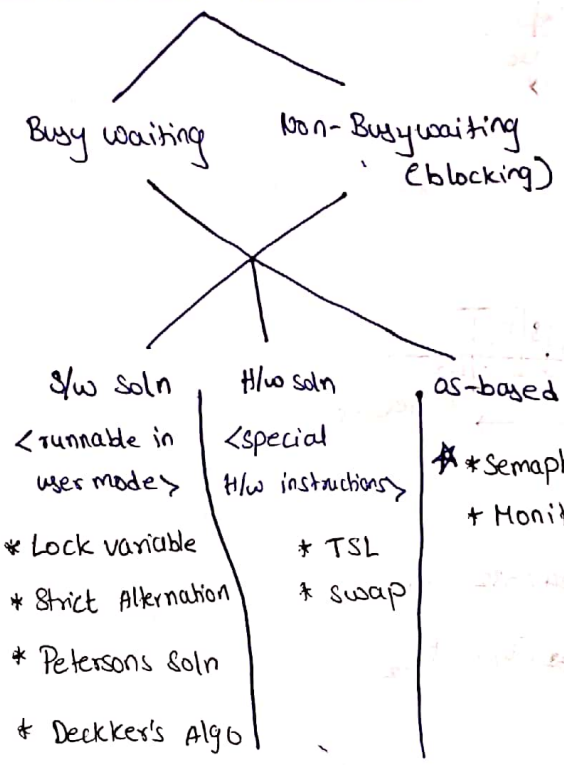 Busy waiting
Non-Busywaiting
(blocking)
S/w Soln
<runnable in
user mode>
* Lock variable
* Strict Alternation
* Petersons Soln
* Deckker's Algo
H/w soln
<special
H/w instructions>
* TSL
* Swap
os-based
* Semaph
* Monit